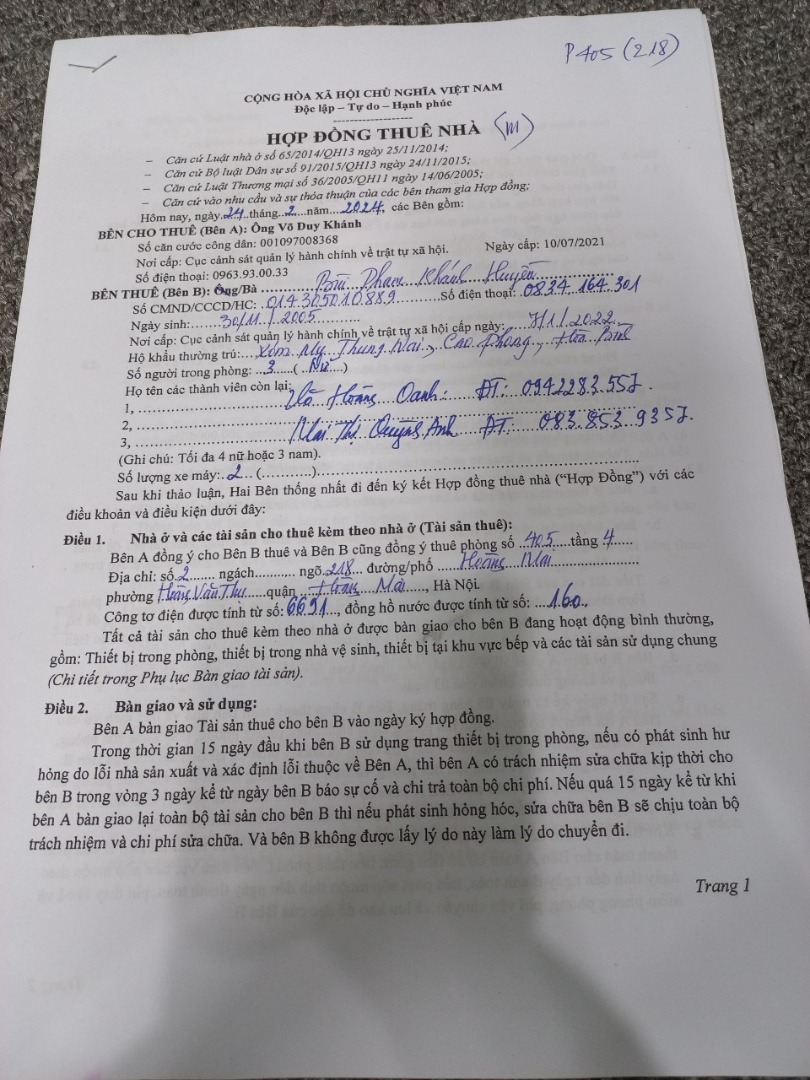 P405 (218)
CỘNG HÒA XÃ HỘI CHỦ NGHĨA VIỆT NAM
Độc lập – Tự do – Hạnh phúc
HỢP ĐỒNG THUÊ NHÀ (M)
– Căn cứ Luật nhà ở số 65/2014/QH13 ngày 25/11/2014;
– Căn cứ Bộ luật Dân sự số 91/2015/QH13 ngày 24/11/2015;
– Căn cứ Luật Thương mại số 36/2005/QH11 ngày 14/06/2005;
– Căn cứ vào nhu cầu và sự thỏa thuận của các bên tham gia Hợp đồng;
Hôm nay, ngày 24 tháng 2 năm 2024, các Bên gồm:
BÊN CHO THUÊ (Bên A): Ông Võ Duy Khánh
Số căn cước công dân: 001097008368
Nơi cấp: Cục cảnh sát quản lý hành chính về trật tự xã hội. Ngày cấp: 10/07/2021
Số điện thoại: 0963.93.00.33
BÊN THUÊ (Bên B): Ông/Bà Phạm Khánh Huyền
Số CMND/CCCD/HC: 014305010889 Số điện thoại: 0834 164 301
Ngày sinh: 30/11/2005
Nơi cấp: Cục cảnh sát quản lý hành chính về trật tự xã hội cấp ngày: 7/1/2022
Hộ khẩu thường trú: Xóm Thung Nai, Cao Phong, Hòa Bình
Số người trong phòng: 3 (Nữ)
Họ tên các thành viên còn lại:
1, Hoàng Oanh: ĐT: 0942283.557.
2,
3, Mai Thị Quỳnh Anh ĐT: 083.853 9357.
(Ghi chú: Tối đa 4 nữ hoặc 3 nam).
Số lượng xe máy: 2 (............)
Sau khi thảo luận, Hai Bên thống nhất đi đến ký kết Hợp đồng thuê nhà (“Hợp Đồng”) với các
điều khoản và điều kiện dưới đây:
Điều 1. Nhà ở và các tài sản cho thuê kèm theo nhà ở (Tài sản thuê):
Bên A đồng ý cho Bên B thuê và Bên B cũng đồng ý thuê phòng số 405 tầng 4
Địa chỉ: số 2 ngách........... ngõ 218 đường/phố Hoàng Mai
phường Hoàng Văn Thụ quận Hoàng Mai, Hà Nội.
Công tơ điện được tính từ số: 6691, đồng hồ nước được tính từ số: 160.
Tất cả tài sản cho thuê kèm theo nhà ở được bàn giao cho bên B đang hoạt động bình thường,
gồm: Thiết bị trong phòng, thiết bị trong nhà vệ sinh, thiết bị tại khu vực bếp và các tài sản sử dụng chung
(Chi tiết trong Phụ lục Bàn giao tài sản).
Điều 2. Bàn giao và sử dụng:
Bên A bàn giao Tài sản thuê cho bên B vào ngày ký hợp đồng.
Trong thời gian 15 ngày đầu khi bên B sử dụng trang thiết bị trong phòng, nếu có phát sinh hư
hỏng do lỗi nhà sản xuất và xác định lỗi thuộc về Bên A, thì bên A có trách nhiệm sửa chữa kịp thời cho
bên B trong vòng 3 ngày kể từ ngày bên B báo sự cố và chi trả toàn bộ chi phí. Nếu quá 15 ngày kể từ khi
bên A bàn giao lại toàn bộ tài sản cho bên B thì nếu phát sinh hỏng hóc, sửa chữa bên B sẽ chịu toàn bộ
trách nhiệm và chi phí sửa chữa. Và bên B không được lấy lý do này làm lý do chuyển đi.
Trang 1